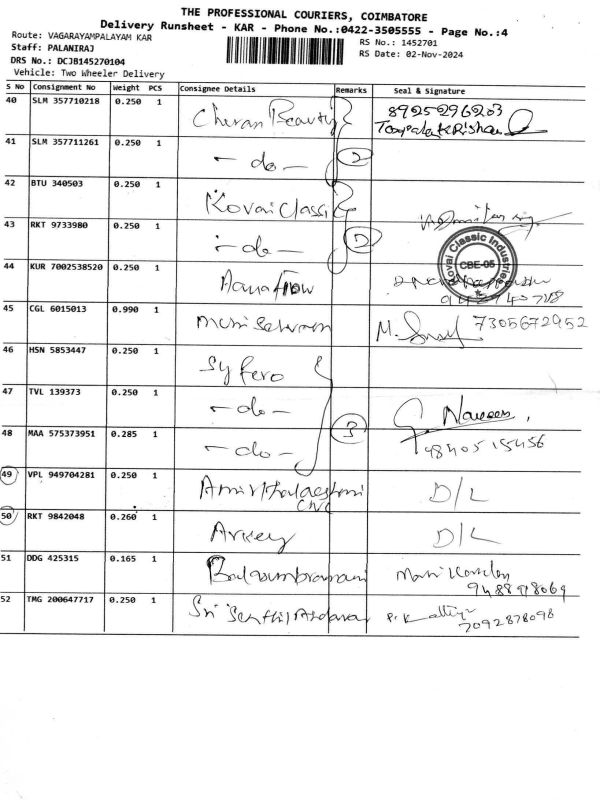 THE PROFESSIONAL COURIERS, COIMBATORE
Delivery Runsheet - KAR - Phone No.:0422-3505555 - Page No.:4
Route: VAGARAYAMPALAYAM KAR
RS No.: 1452701
Staff: PALANIRAJ
RS Date: 02-Nov-2024
DRS No.: DCJB145270104
Vehicle: Two Wheeler Delivery
S No Consignment No Weight PCS Consignee Details Remarks Seal & Signature
40 SLM 357710218 0.250 1 Cheran Beauty 8925296203
41 SLM 357711261 0.250 1 - do - 2
42 BTU 340503 0.250 1 Kovai Classi
43 RKT 9733980 0.250 1 - do - 2
Kovai Classic Industries
CBE-05
44 KUR 7002538520 0.250 1
45 CGL 6015013 0.990 1 7305672952
46 HSN 5853447 0.250 1 Syfero
47 TVL 139373 0.250 1 - do - Naveen
48 MAA 575373951 0.285 1 - do - 3
49 VPL 949704281 0.250 1 D/L
50 RKT 9842048 0.260 1 Arkey D/L
51 DDG 425315 0.165 1
52 TMG 200647717 0.250 1 Sri Senthil
7092878098